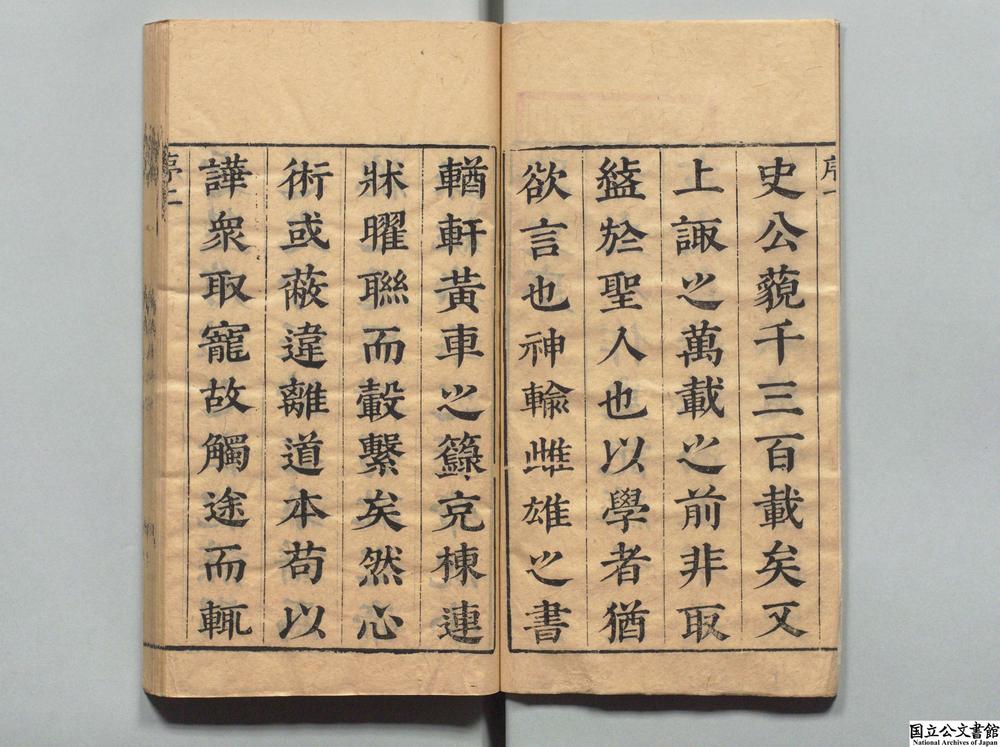 序一
史公藐千三百載矣又
上諏之萬載之前非取
盭於聖人也以學者猶
欲言也神輸雌雄之書
輶軒黃車之籙充棟連
牀曜聯而轂繫矣然心
術或蔽違離道本苟以
譁衆取寵故觸途而輒
序二
国立公文書館
National Archives of Japan